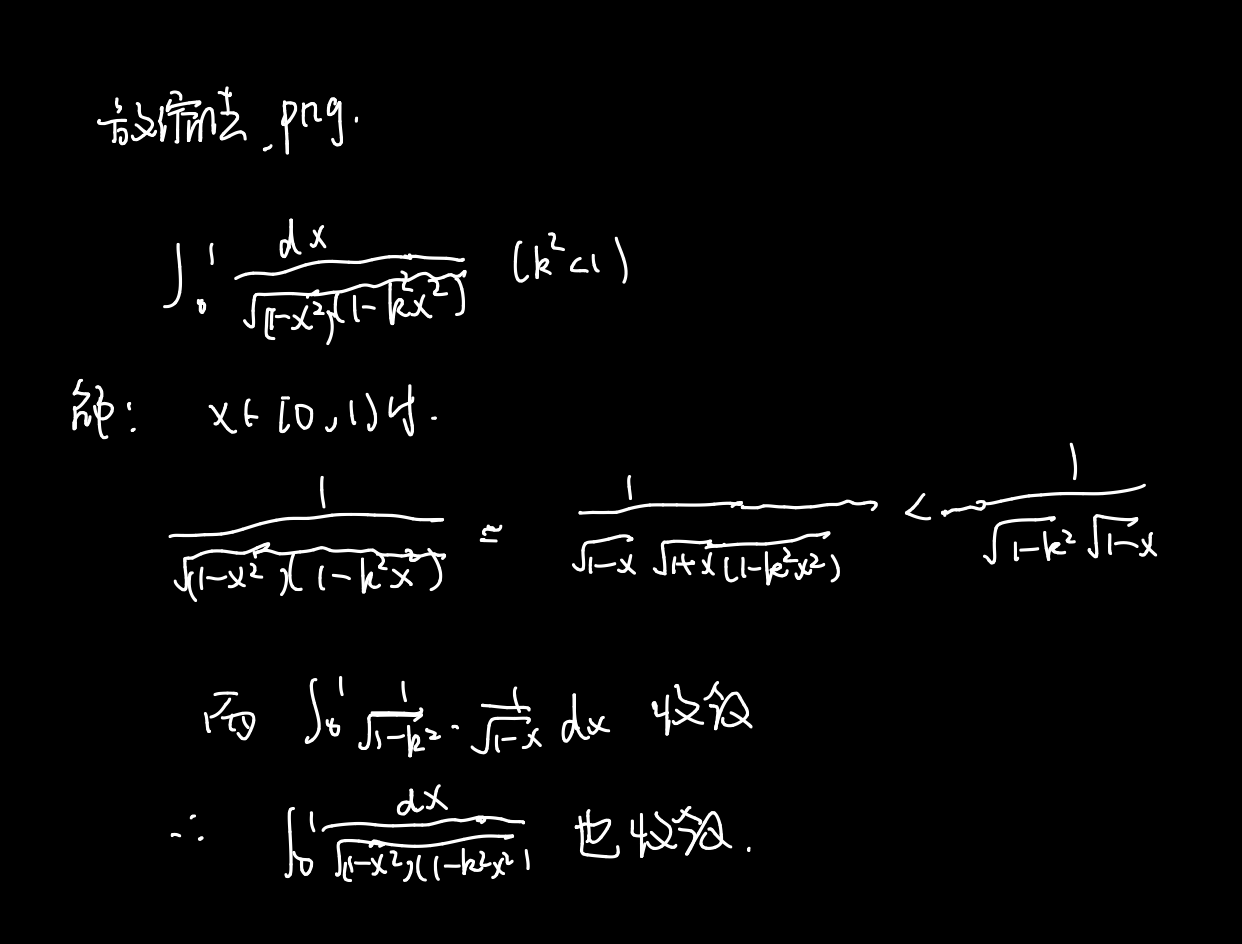 放缩法.png.
∫₀¹ dx/√((1-x²)(1-k²x²)) (k²<1)
解: x∈[0,1)时.
1/√((1-x²)(1-k²x²)) = 1/(√(1-x) √(1+x(1-k²x²))) < 1/(√(1-k²) √(1-x))
而 ∫₀¹ 1/√(1-k²) · 1/√(1-x) dx 收敛
∴ ∫₀¹ dx/√((1-x²)(1-k²x²)) 也收敛.